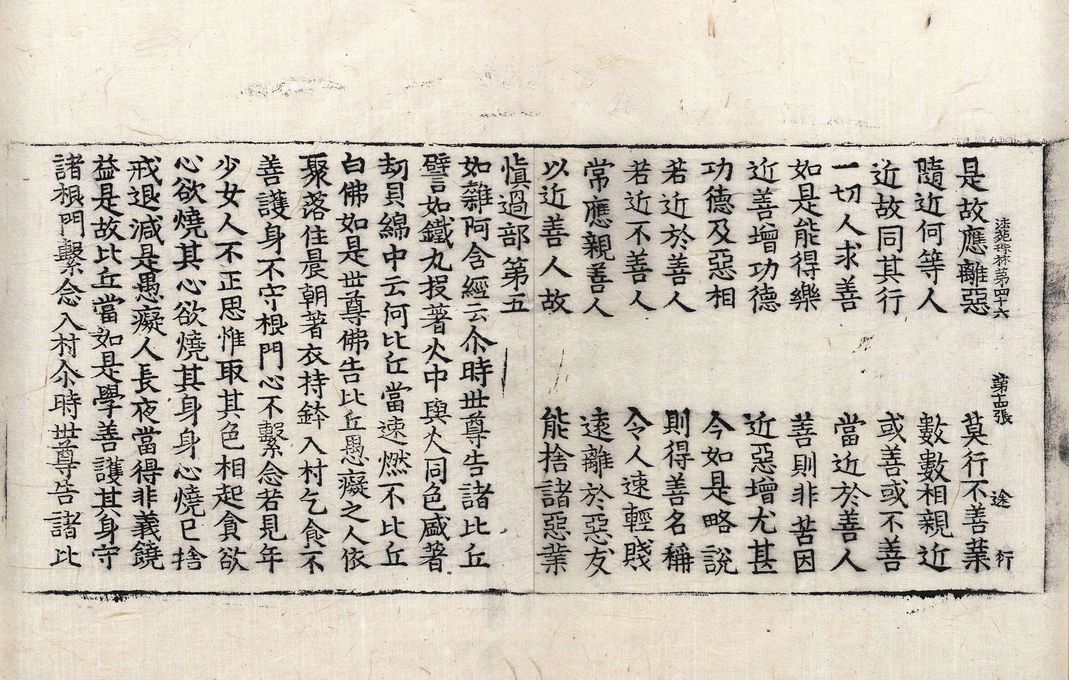 法苑珠林第四十六 第 張 途 行
是故應離惡 莫行不善業
隨近何等人 數數相親近
近故同其行 或善或不善
一切人求善 當近於善人
如是能得樂 善則非苦因
近善增功德 近惡增尤甚
功德及惡相 今如是略說
若近於善人 則得善名稱
若近不善人 令人速輕賤
常應親善人 遠離於惡友
以近善人故 能捨諸惡業
慎過部第五
如雜阿含經云尒時世尊告諸比丘
譬如鐵丸投著火中與火同色盛著
劫貝綿中云何比丘當速燃不比丘
白佛如是世尊佛告比丘愚癡之人依
聚落住晨朝著衣持鉢入村乞食不
善護身不守根門心不繫念若見年
少女人不正思惟取其色相起貪欲
心欲燒其心欲燒其身身心燒已捨
戒退減是愚癡人長夜當得非義饒
益是故比丘當如是學善護其身守
諸根門繫念入村尒時世尊告諸比